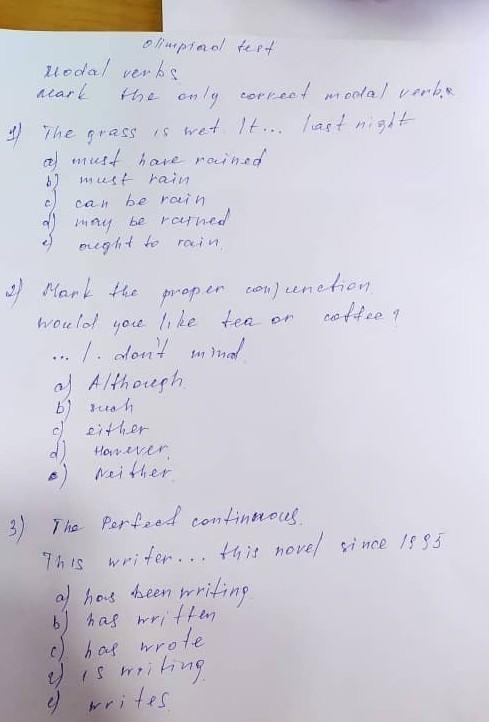 Olimpiad test
Modal verbs
Mark the only correct modal verbs
1) The grass is wet. It... last night
a) must have rained
b) must rain
c) can be rain
d) may be rained
e) ought to rain.
2) Mark the proper conjunction
would you like tea or coffee?
... I. don't mind.
a) Although.
b) such
c) either
d) However.
e) Neither.
3) The Perfect continuous.
This writer... this novel since 1995
a) has been writing.
b) has written
c) has wrote
d) is writing
e) writes.